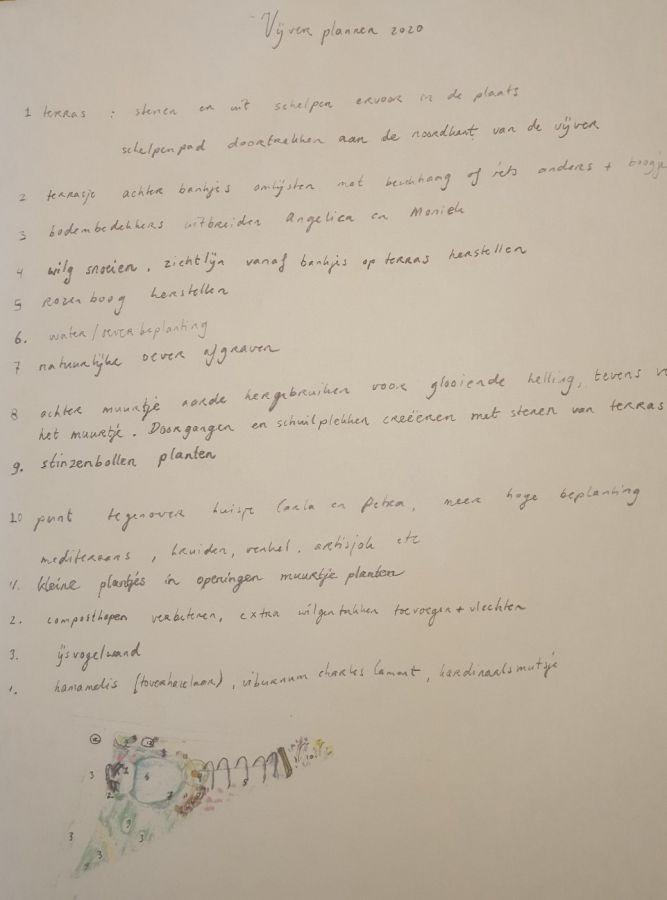 Vijver plannen 2020
1 terras : stenen er uit schelpen ervoor in de plaats
schelpenpad doortrekken aan de noordkant van de vijver
2 terrasje achter bankjes omlijsten met beukhaag of iets anders + boogje
3 bodembedekkers uitbreiden Angelica en Moniek
4 wilg snoeien, zichtlijn vanaf bankjes op terras herstellen
5 rozenboog herstellen
6. water/oeverbeplanting
7 natuurlijke oever afgraven
8 achter muurtje aarde hergebruiken voor glooiende helling, tevens
het muurtje. Doorgangen en schuilplekken creëeren met stenen van terras
9. stinzenbollen planten
10 punt tegenover huisje Carla en Petra, meer hoge beplanting
mediteraans, kruiden, venkel, artisjok etc
11. kleine plantjes in openingen muurtje planten
2. composthopen verbeteren, extra wilgentakken toevoegen + vlechten
3. ijsvogelwand
1. hamamelis (toverhazelaar), viburnum charles lamont, kardinaalsmutsje
3
6
7
5
9
3
3
3